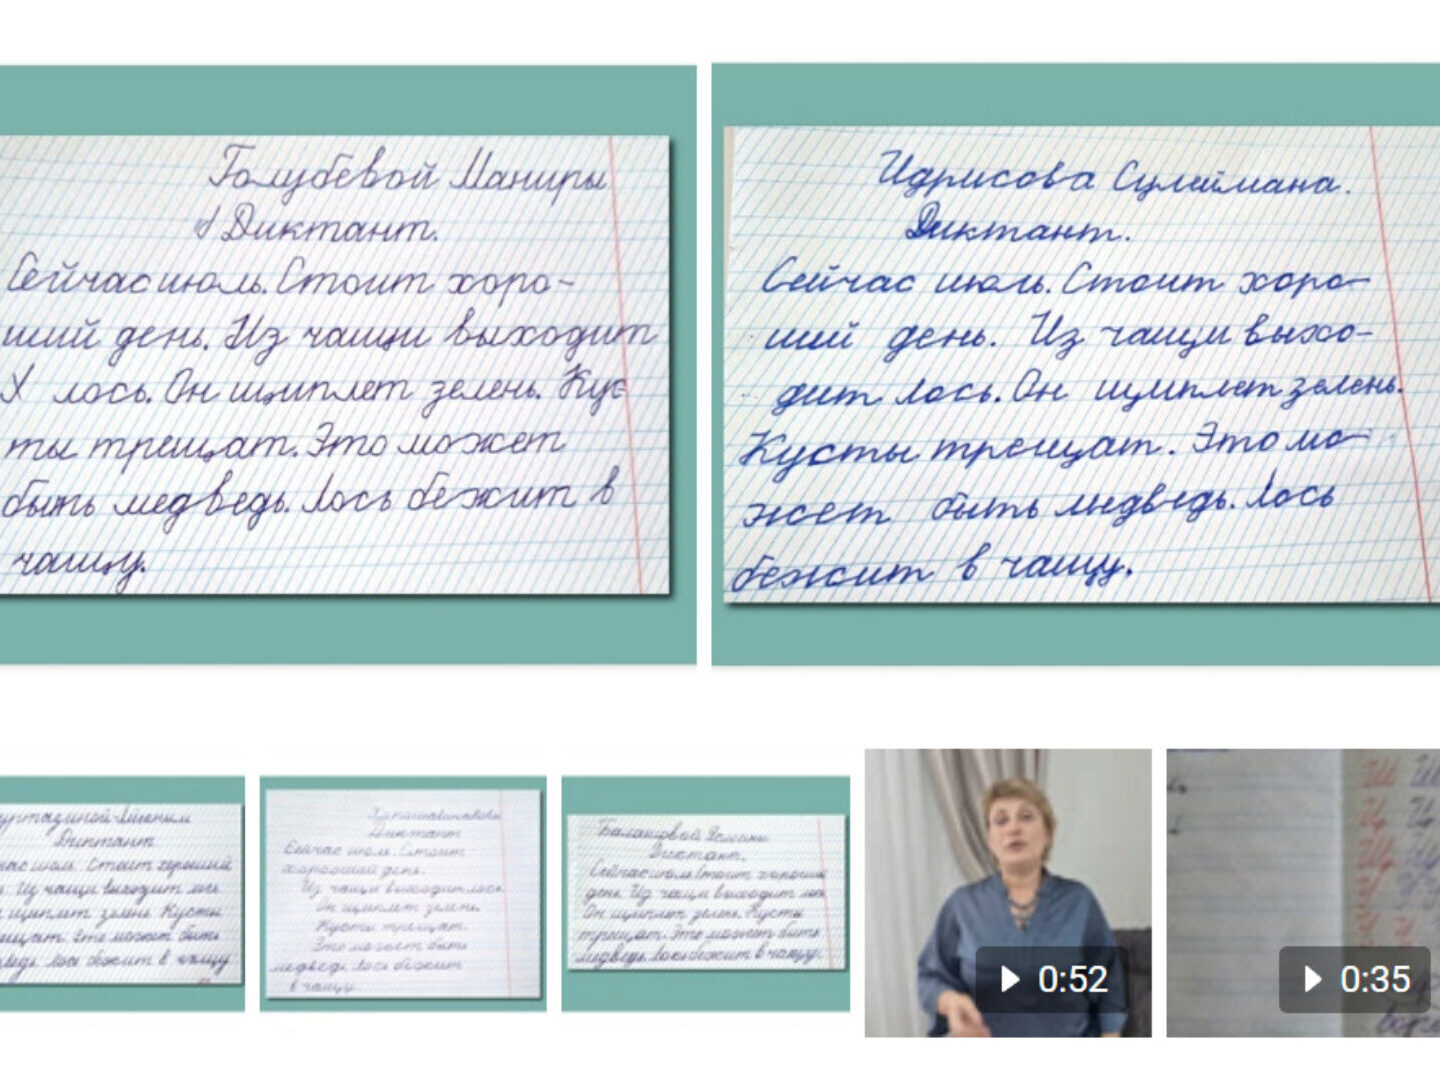 Голубевой Маниры
Диктант.
Сейчас июль. Стоит хоро-
ший день. Из чащи выходит
Х лось. Он щиплет зелень. Кус-
ты трещат. Это может
быть медведь. Лось бежит в
чащу.
Идрисова Сулеймана.
Диктант.
Сейчас июль. Стоит хоро-
ший день. Из чащи выхо-
дит лось. Он щиплет зелень.
Кусты трещат. Это мо-
жет быть медведь. Лось
бежит в чащу.
Диктант
Стоит хороший
Из чащи выходит лось
щиплет зелень Кусты
Это может быть
Лось бежит в чащу
Диктант
Сейчас июль. Стоит
хороший день.
Из чащи выходит лось
Он щиплет зелень.
Кусты трещат.
Это может быть
медведь. Лось бежит
в чащу.
Балашовой
Диктант.
Сейчас июль. Стоит хороший
день. Из чащи выходит лось
Он щиплет зелень. Кусты
трещат. Это может быть
медведь. Лось бежит в чащу.
0:52
0:35